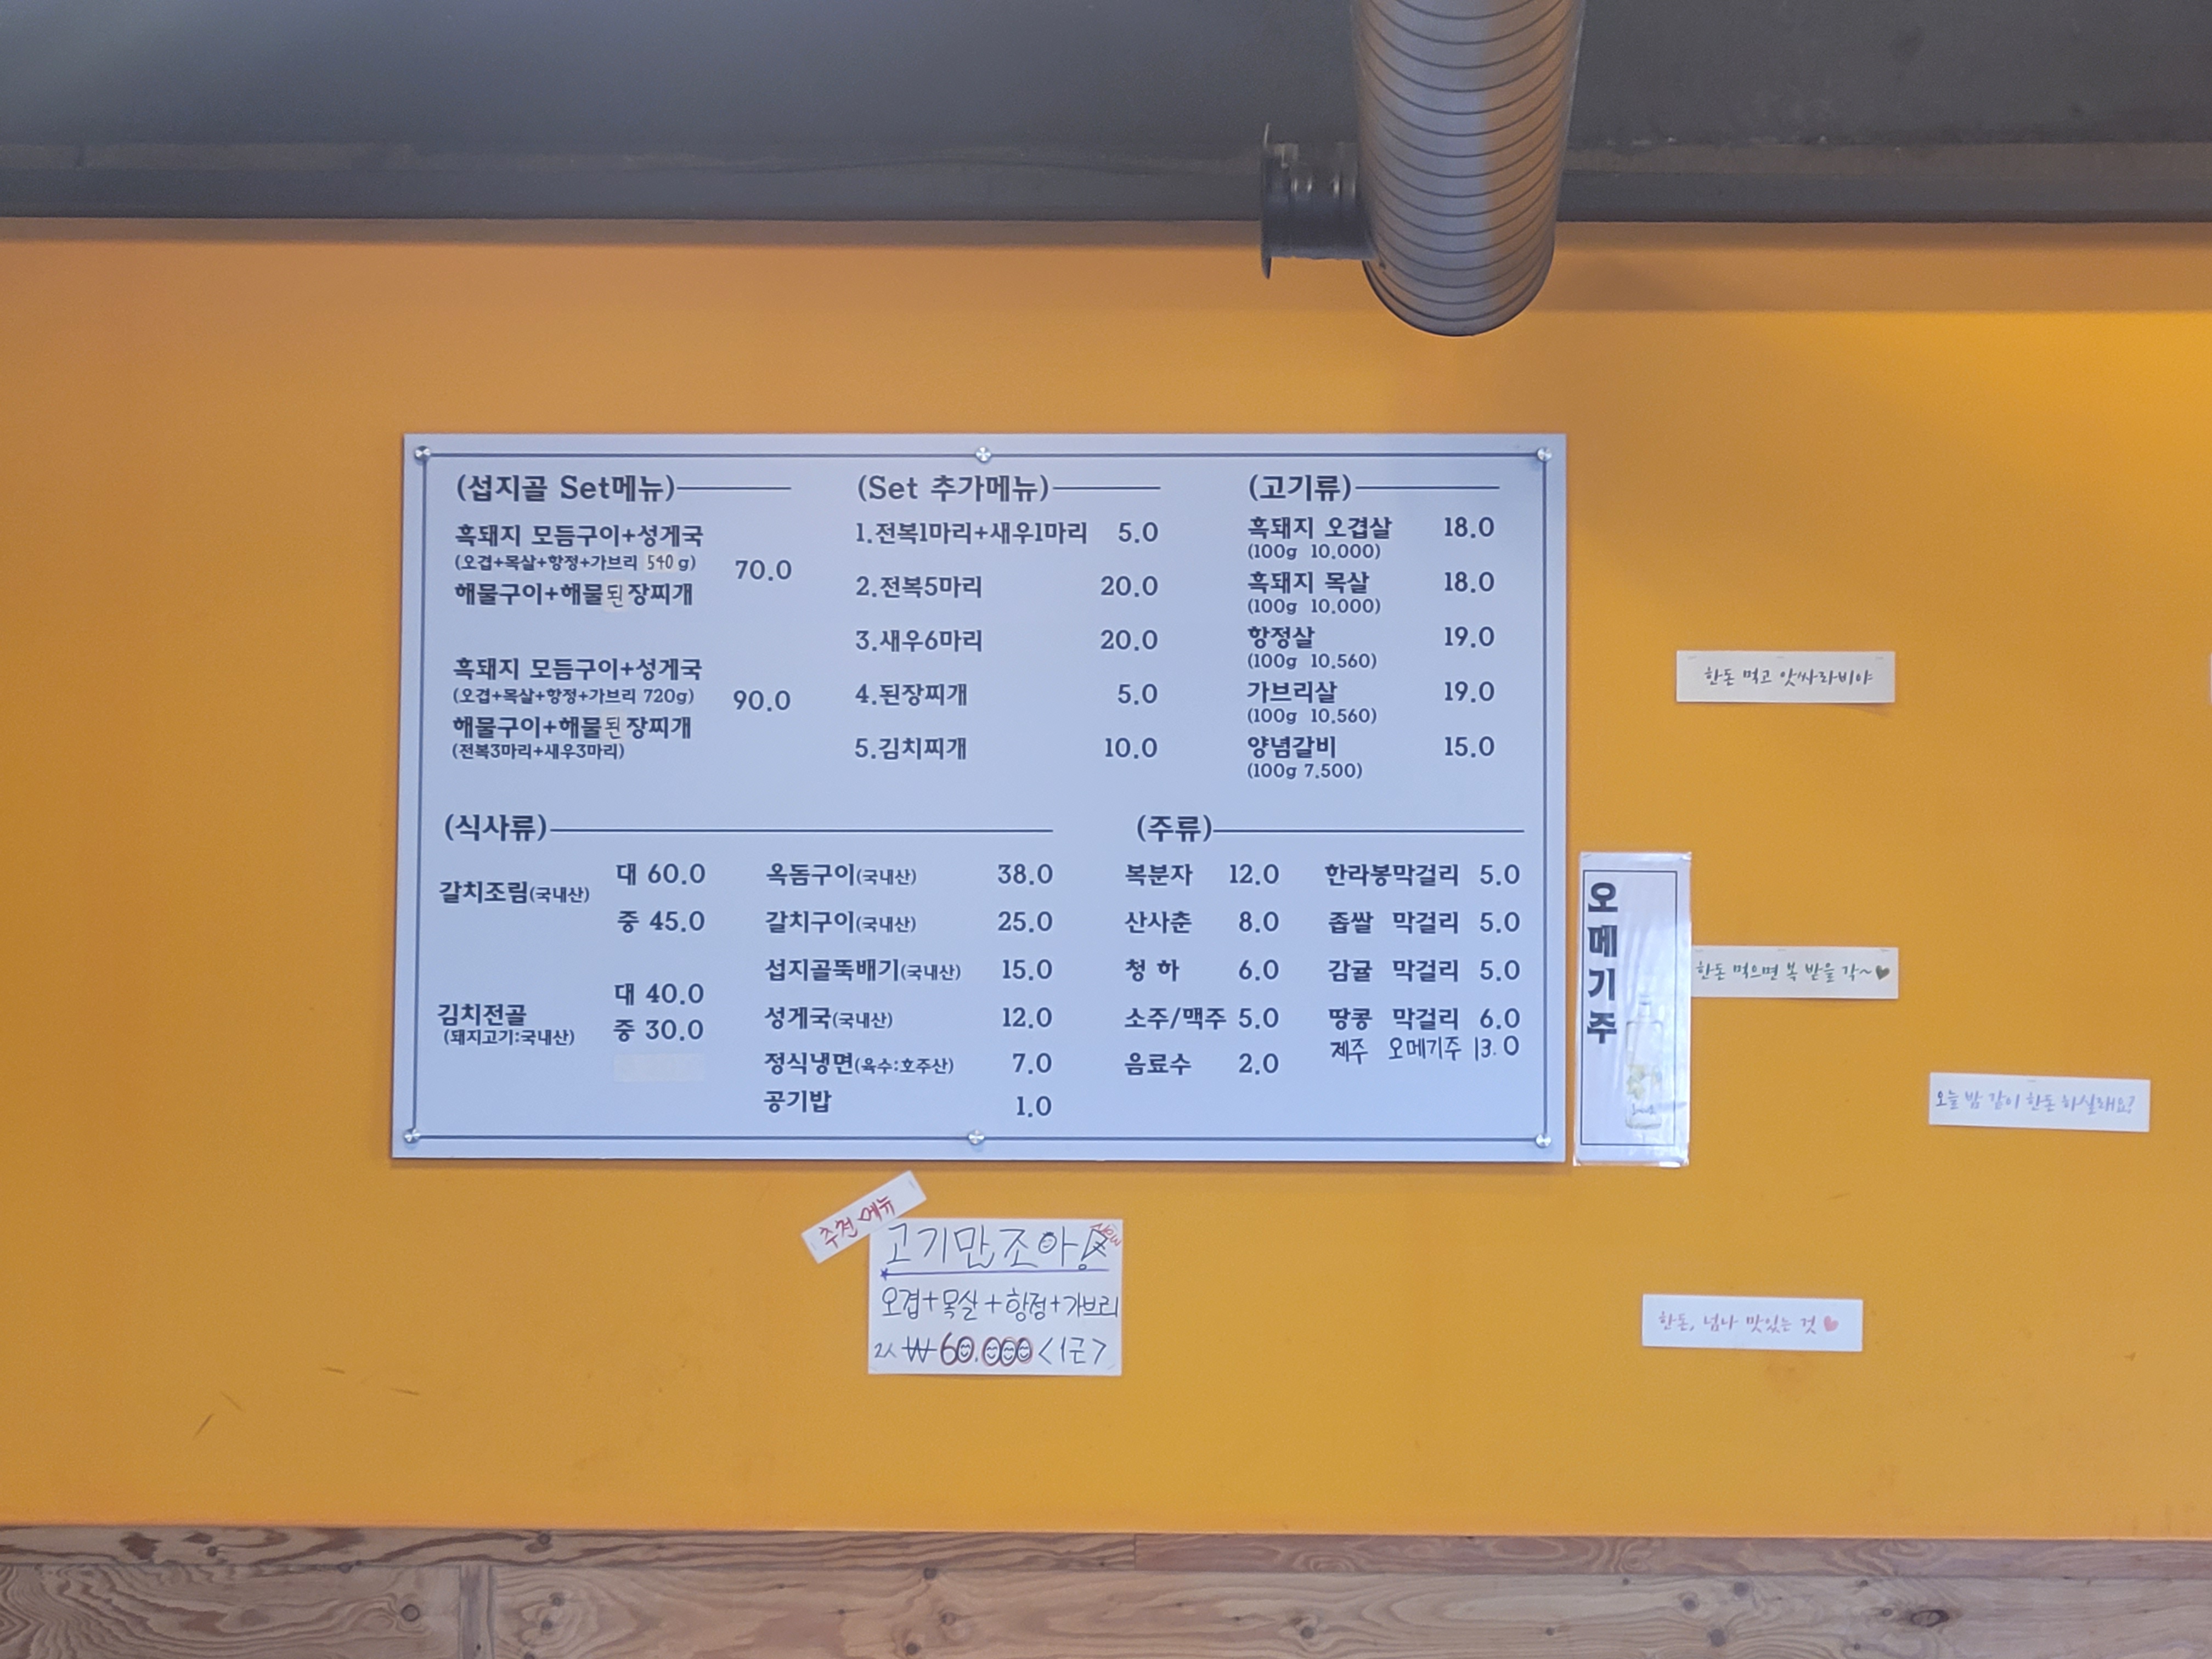 (섭지골 Set메뉴)
흑돼지 모듬구이+성게국
(오겹+목살+항정+가브리 540g)
70.0
해물구이+해물된장찌개
흑돼지 모듬구이+성게국
(오겹+목살+항정+가브리 720g)
90.0
해물구이+해물된장찌개
(전복3마리+새우3마리)
(Set 추가메뉴)
1.전복1마리+새우1마리 5.0
2.전복5마리 20.0
3.새우6마리 20.0
4.된장찌개 5.0
5.김치찌개 10.0
(고기류)
흑돼지 오겹살 18.0
(100g 10.000)
흑돼지 목살 18.0
(100g 10.000)
항정살 19.0
(100g 10.560)
가브리살 19.0
(100g 10.560)
양념갈비 15.0
(100g 7.500)
(식사류)
갈치조림(국내산)
대 60.0
중 45.0
김치전골
(돼지고기:국내산)
대 40.0
중 30.0
옥돔구이(국내산) 38.0
갈치구이(국내산) 25.0
섭지골뚝배기(국내산) 15.0
성게국(국내산) 12.0
정식냉면(육수:호주산) 7.0
공기밥 1.0
(주류)
복분자 12.0
산사춘 8.0
청 하 6.0
소주/맥주 5.0
음료수 2.0
한라봉막걸리 5.0
좁쌀 막걸리 5.0
감귤 막걸리 5.0
땅콩 막걸리 6.0
제주 오메기주 13.0
오메기주
한돈 먹고 앗싸라비야
한돈 먹으면 복 받을 각~♥
오늘 밤 같이 한돈 하실래요?
한돈, 넘나 맛있는 것 ♥
추천 메뉴
고기만 조아! New
오겹+목살+항정+가브리
2人 ₩60.000 <1근>